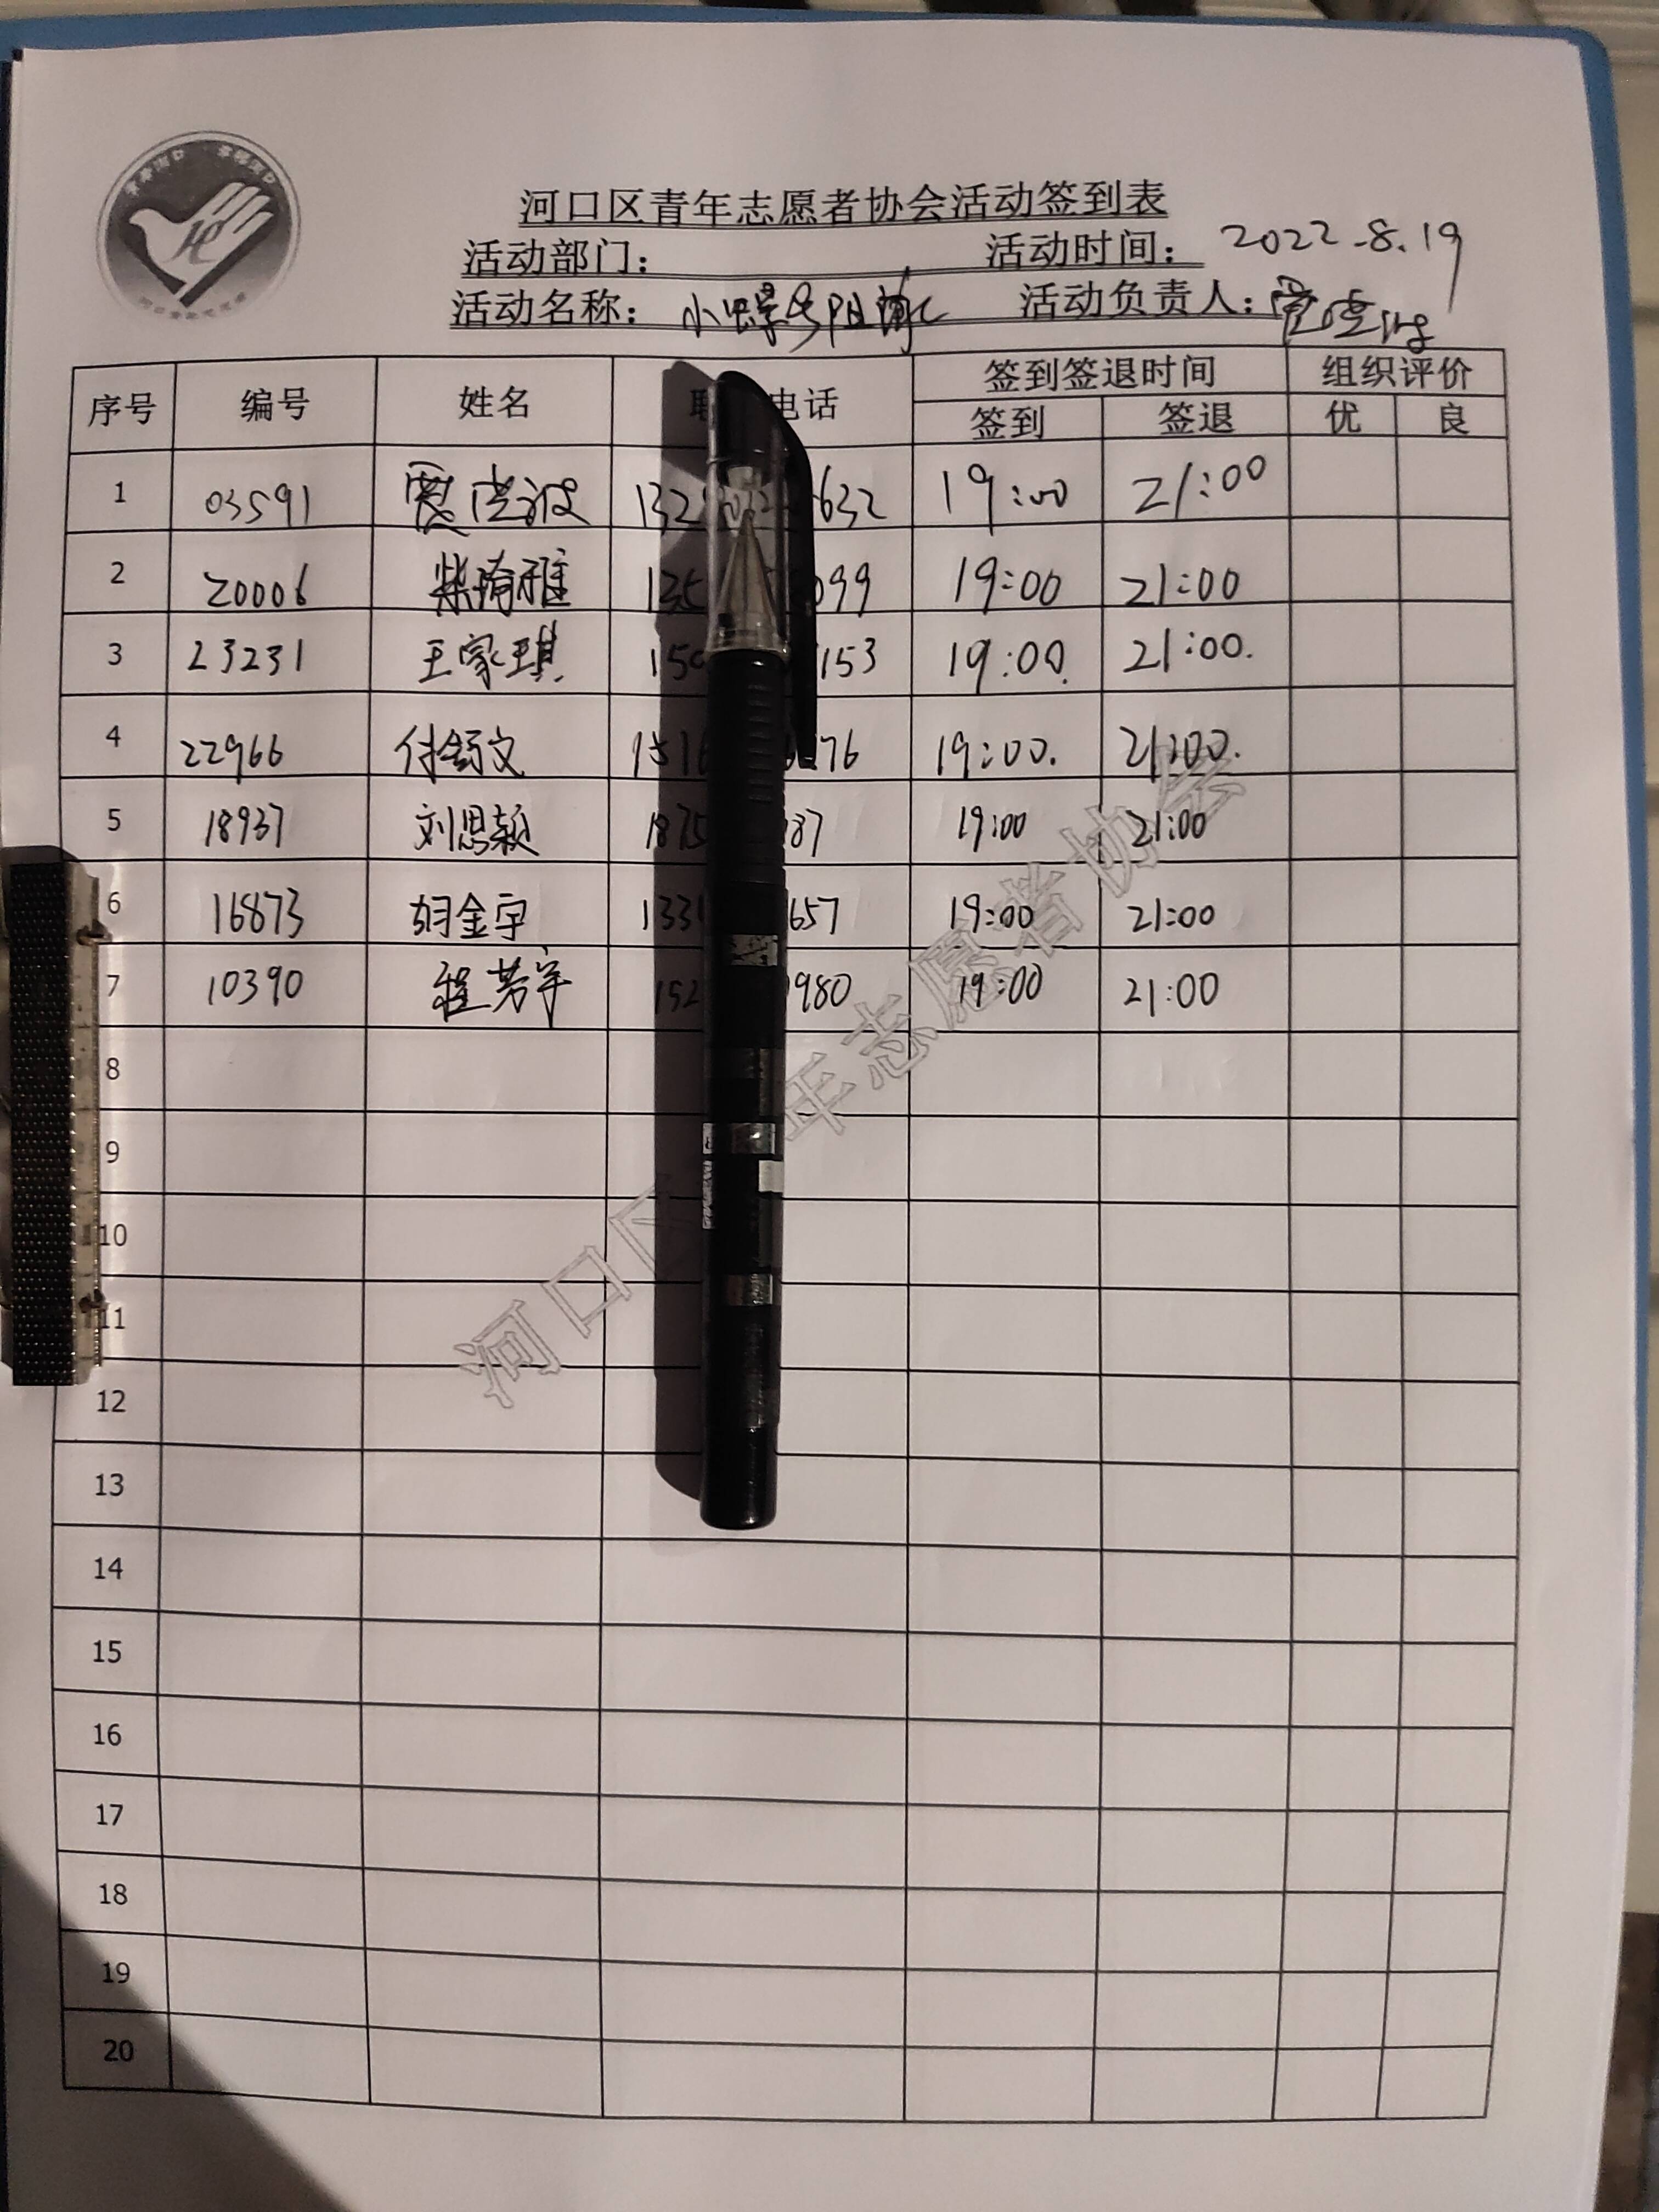 河口区青年志愿者协会活动签到表
活动部门： 活动时间： 2022.8.19
活动名称： 小 活动负责人：
序号 编号 姓名 电话 签到签退时间 组织评价
签到 签退 优 良
1 03591 132 632 19:00 21:00
2 20006 柴琦雅 135 099 19:00 21:00
3 23231 王家琪 150 153 19:00 21:00.
4 22966 付 文 1516 76 19:00. 21:00.
5 18937 刘思颖 1875 87 19:00 21:00
6 16873 胡金宇 133 657 19:00 21:00
7 10390 程芳宇 152 980 19:00 21:00
8
9
10
11
12
13
14
15
16
17
18
19
20
河口区 年志愿者协会